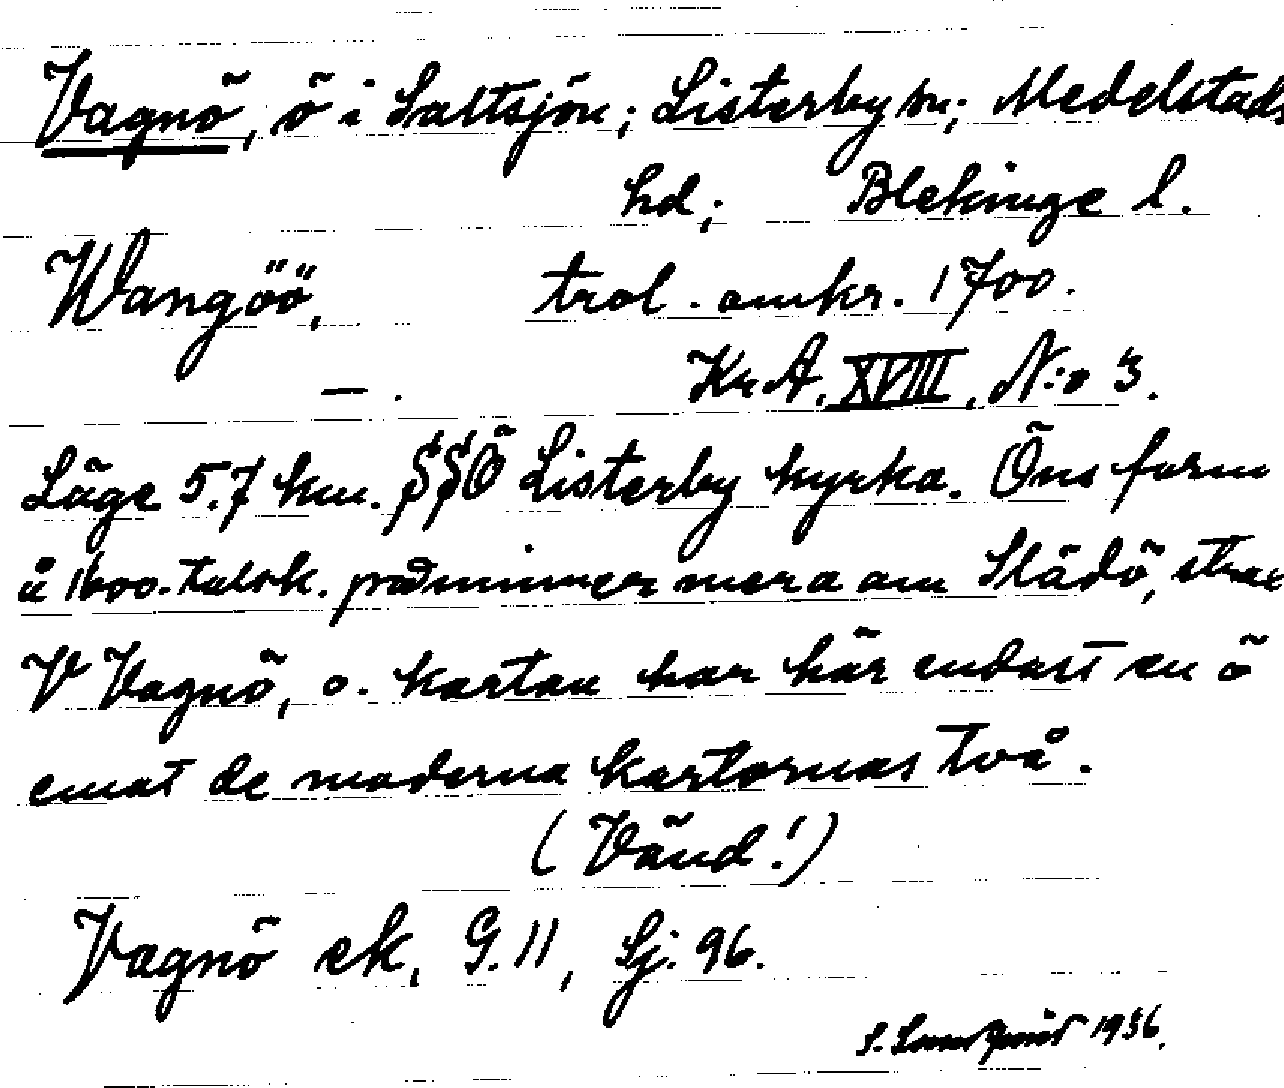 Vagnö, ö i Saltsjön; Listerby sn; Medelstads
hd; Blekinge l.
Wangöö, trol. omkr. 1700.
— . KrA. XVIII, N:o 3.
Läge 5.7 km. SSÖ Listerby kyrka. Öns form
å 1600-talsk. påminner mera om Slädö, strax
V Vagnö, o. kartan har här endast en ö
emot de moderna kartornas två.
(Vänd!)
Vagnö ek, G. 11, Sj. 96.
S. 1936.